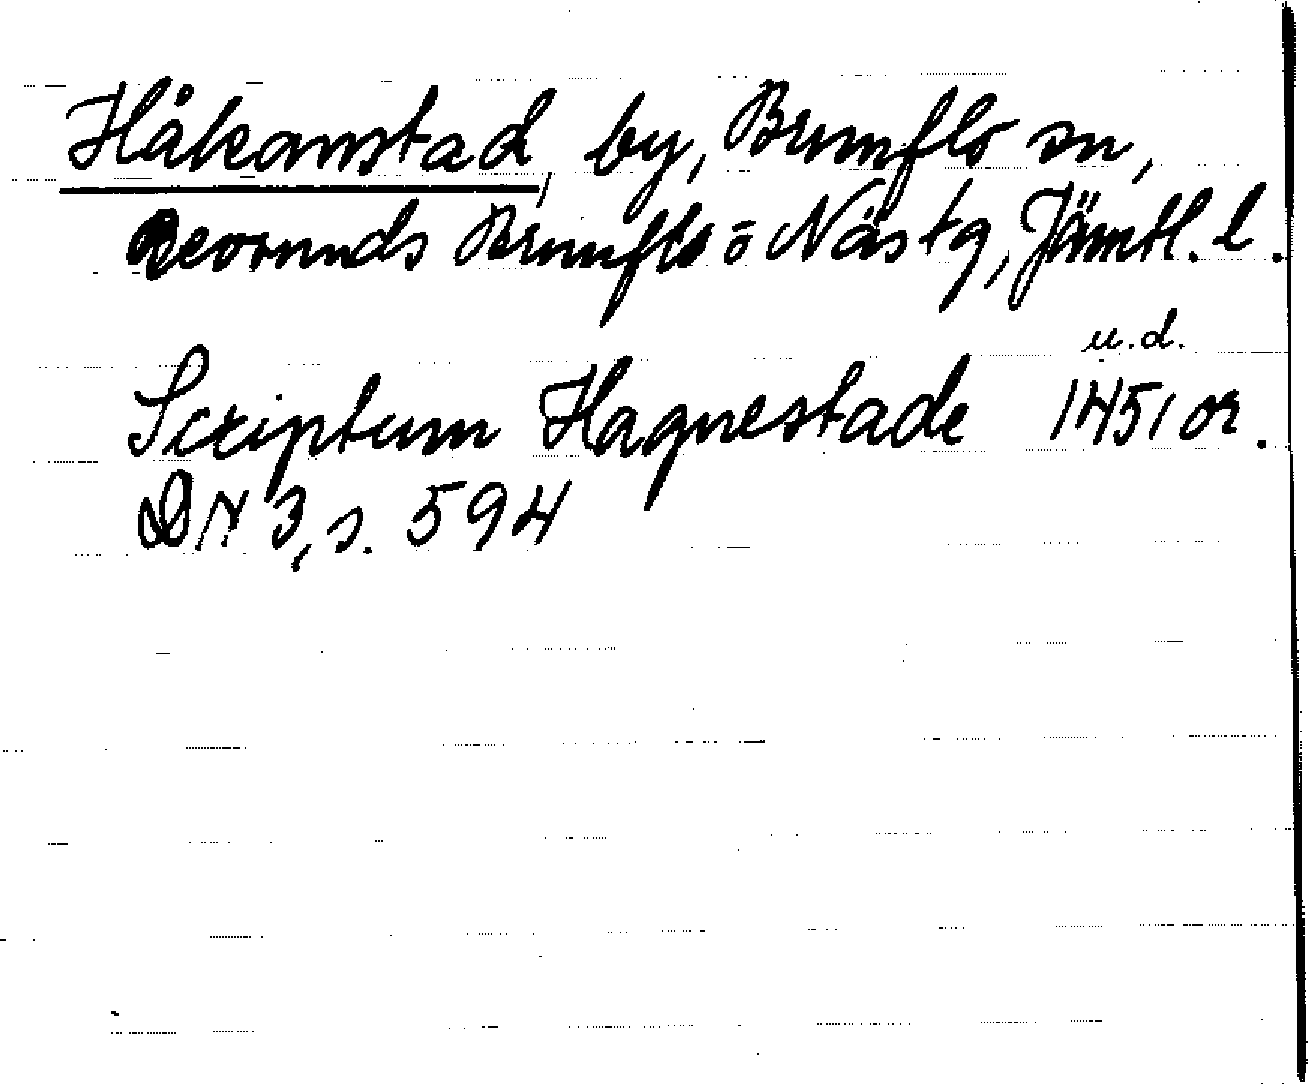 Håkanstad, by, Brunflo sn,
Revsunds Brunflo o Näs tg, Jämtl. l.
u.d.
Scriptum Hagnestade 1451 or.
DN 3, s. 594